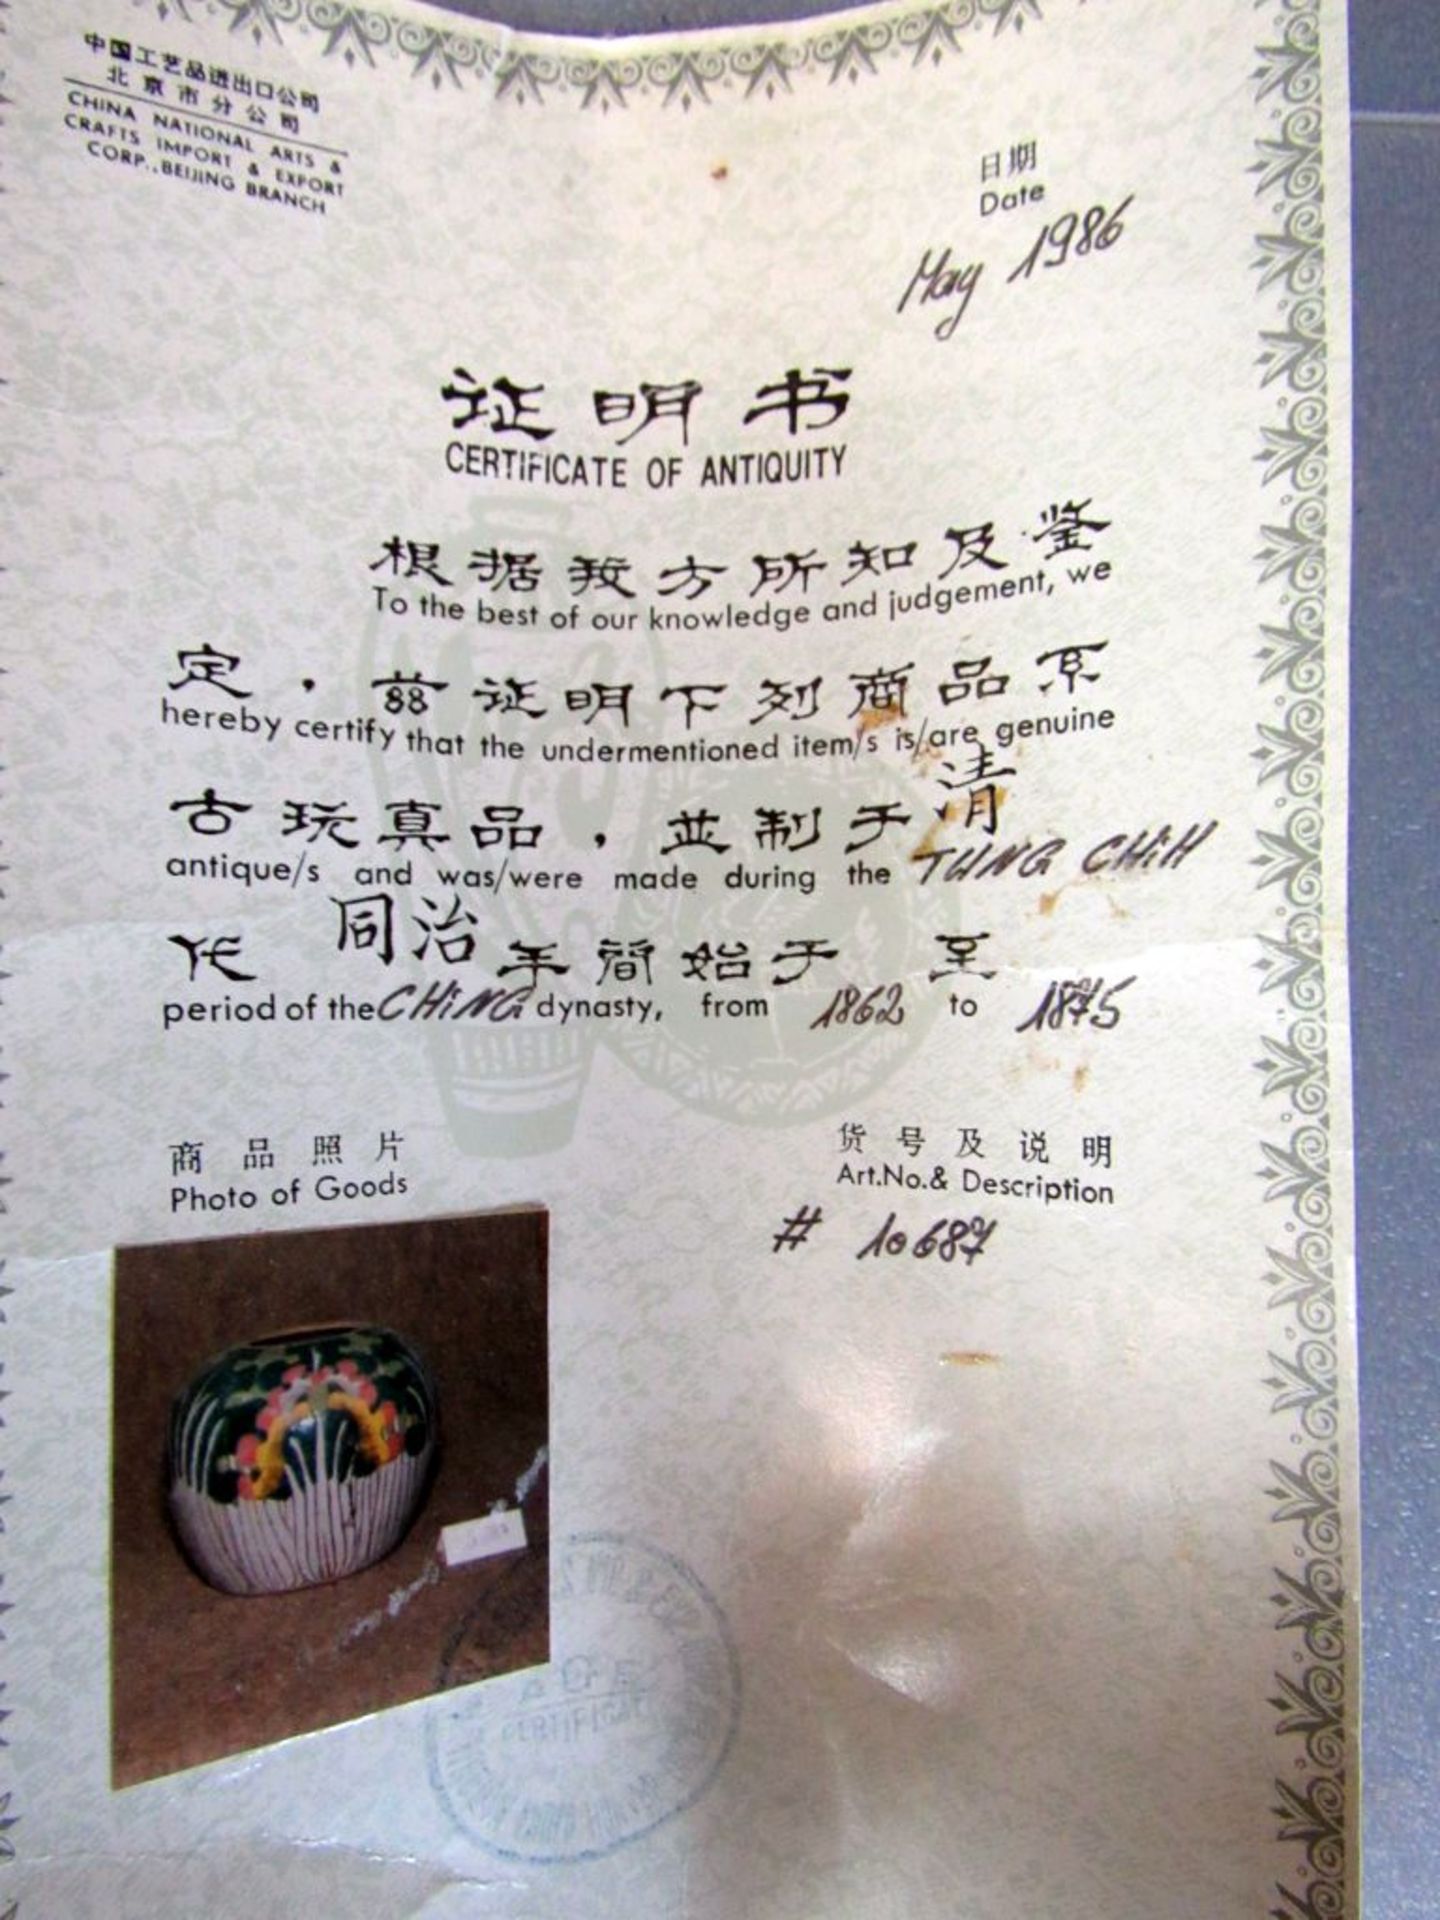 中国工艺品进出口公司
北京市分公司
CHINA NATIONAL ARTS &
CRAFTS IMPORT & EXPORT
CORP., BEIJING BRANCH
日期
Date
May 1986
证明书
CERTIFICATE OF ANTIQUITY
根据我方所知及鉴
To the best of our knowledge and judgement, we
定，兹证明下列商品系
hereby certify that the undermentioned item/s is/are genuine
古玩真品，並制于清
antique/s and was/were made during the TUNG CHiH
代 同治 年间始于 至
period of the CHiNG dynasty, from 1862 to 1875
商品照片
Photo of Goods
货号及说明
Art.No.& Description
# 10687
CERTIFICATE